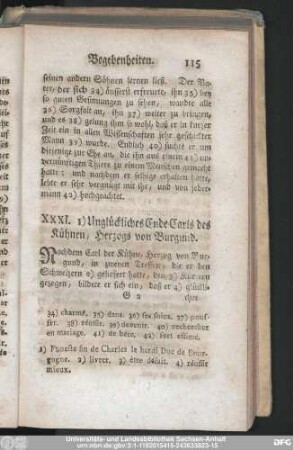 Begebenheiten. 115
seinen andern Söhnen lernen ließ. Der Va-
ter, der sich 34) äusserst erfreute, ihn 35) bey
so guten Gesinnungen zu sehen, wandte alle
36) Sorgfalt an, ihn 37) weiter zu bringen,
und es 38) gelung ihm so wohl, daß er in kurzer
Zeit ein in allen Wissenschaften sehr geschickter
Mann 39) wurde. Endlich 40) suchte er um
diejenige zur Ehe an, die ihn aus einem 41) un-
vernünftigen Thiere zu einem Menschen gemacht
hatte; und nachdem er selbige erhalten hatte,
lebte er sehr vergnügt mit ihr, und von jeder-
mann 42) hochgeachtet.
XXXI. 1) Unglückliches Ende Carls des
Kühnen, Herzogs von Burgund.
Nachdem Carl der Kühne, Herzog von Bur-
gund, in zweyen Treffen, die er den
Schweizern 2) geliefert hatte, den 3) Kürzern
gezogen, bildete er sich ein, daß er 4) glückli-
G 2 cher
34) charmé. 35) dans. 36) ses soins. 37) pous-
ser. 38) réussir. 39) devenir. 40) rechercher
en mariage. 41) de bête. 42) fort estimé.
1) Funeste fin de Charles le hardi Duc de Bour-
gogne. 2) livrer. 3) être défait. 4) réussir
mieux.
Universitäts- und Landesbibliothek Sachsen-Anhalt
urn:nbn:de:gbv:3:1-1192015415-243633823-15
DFG